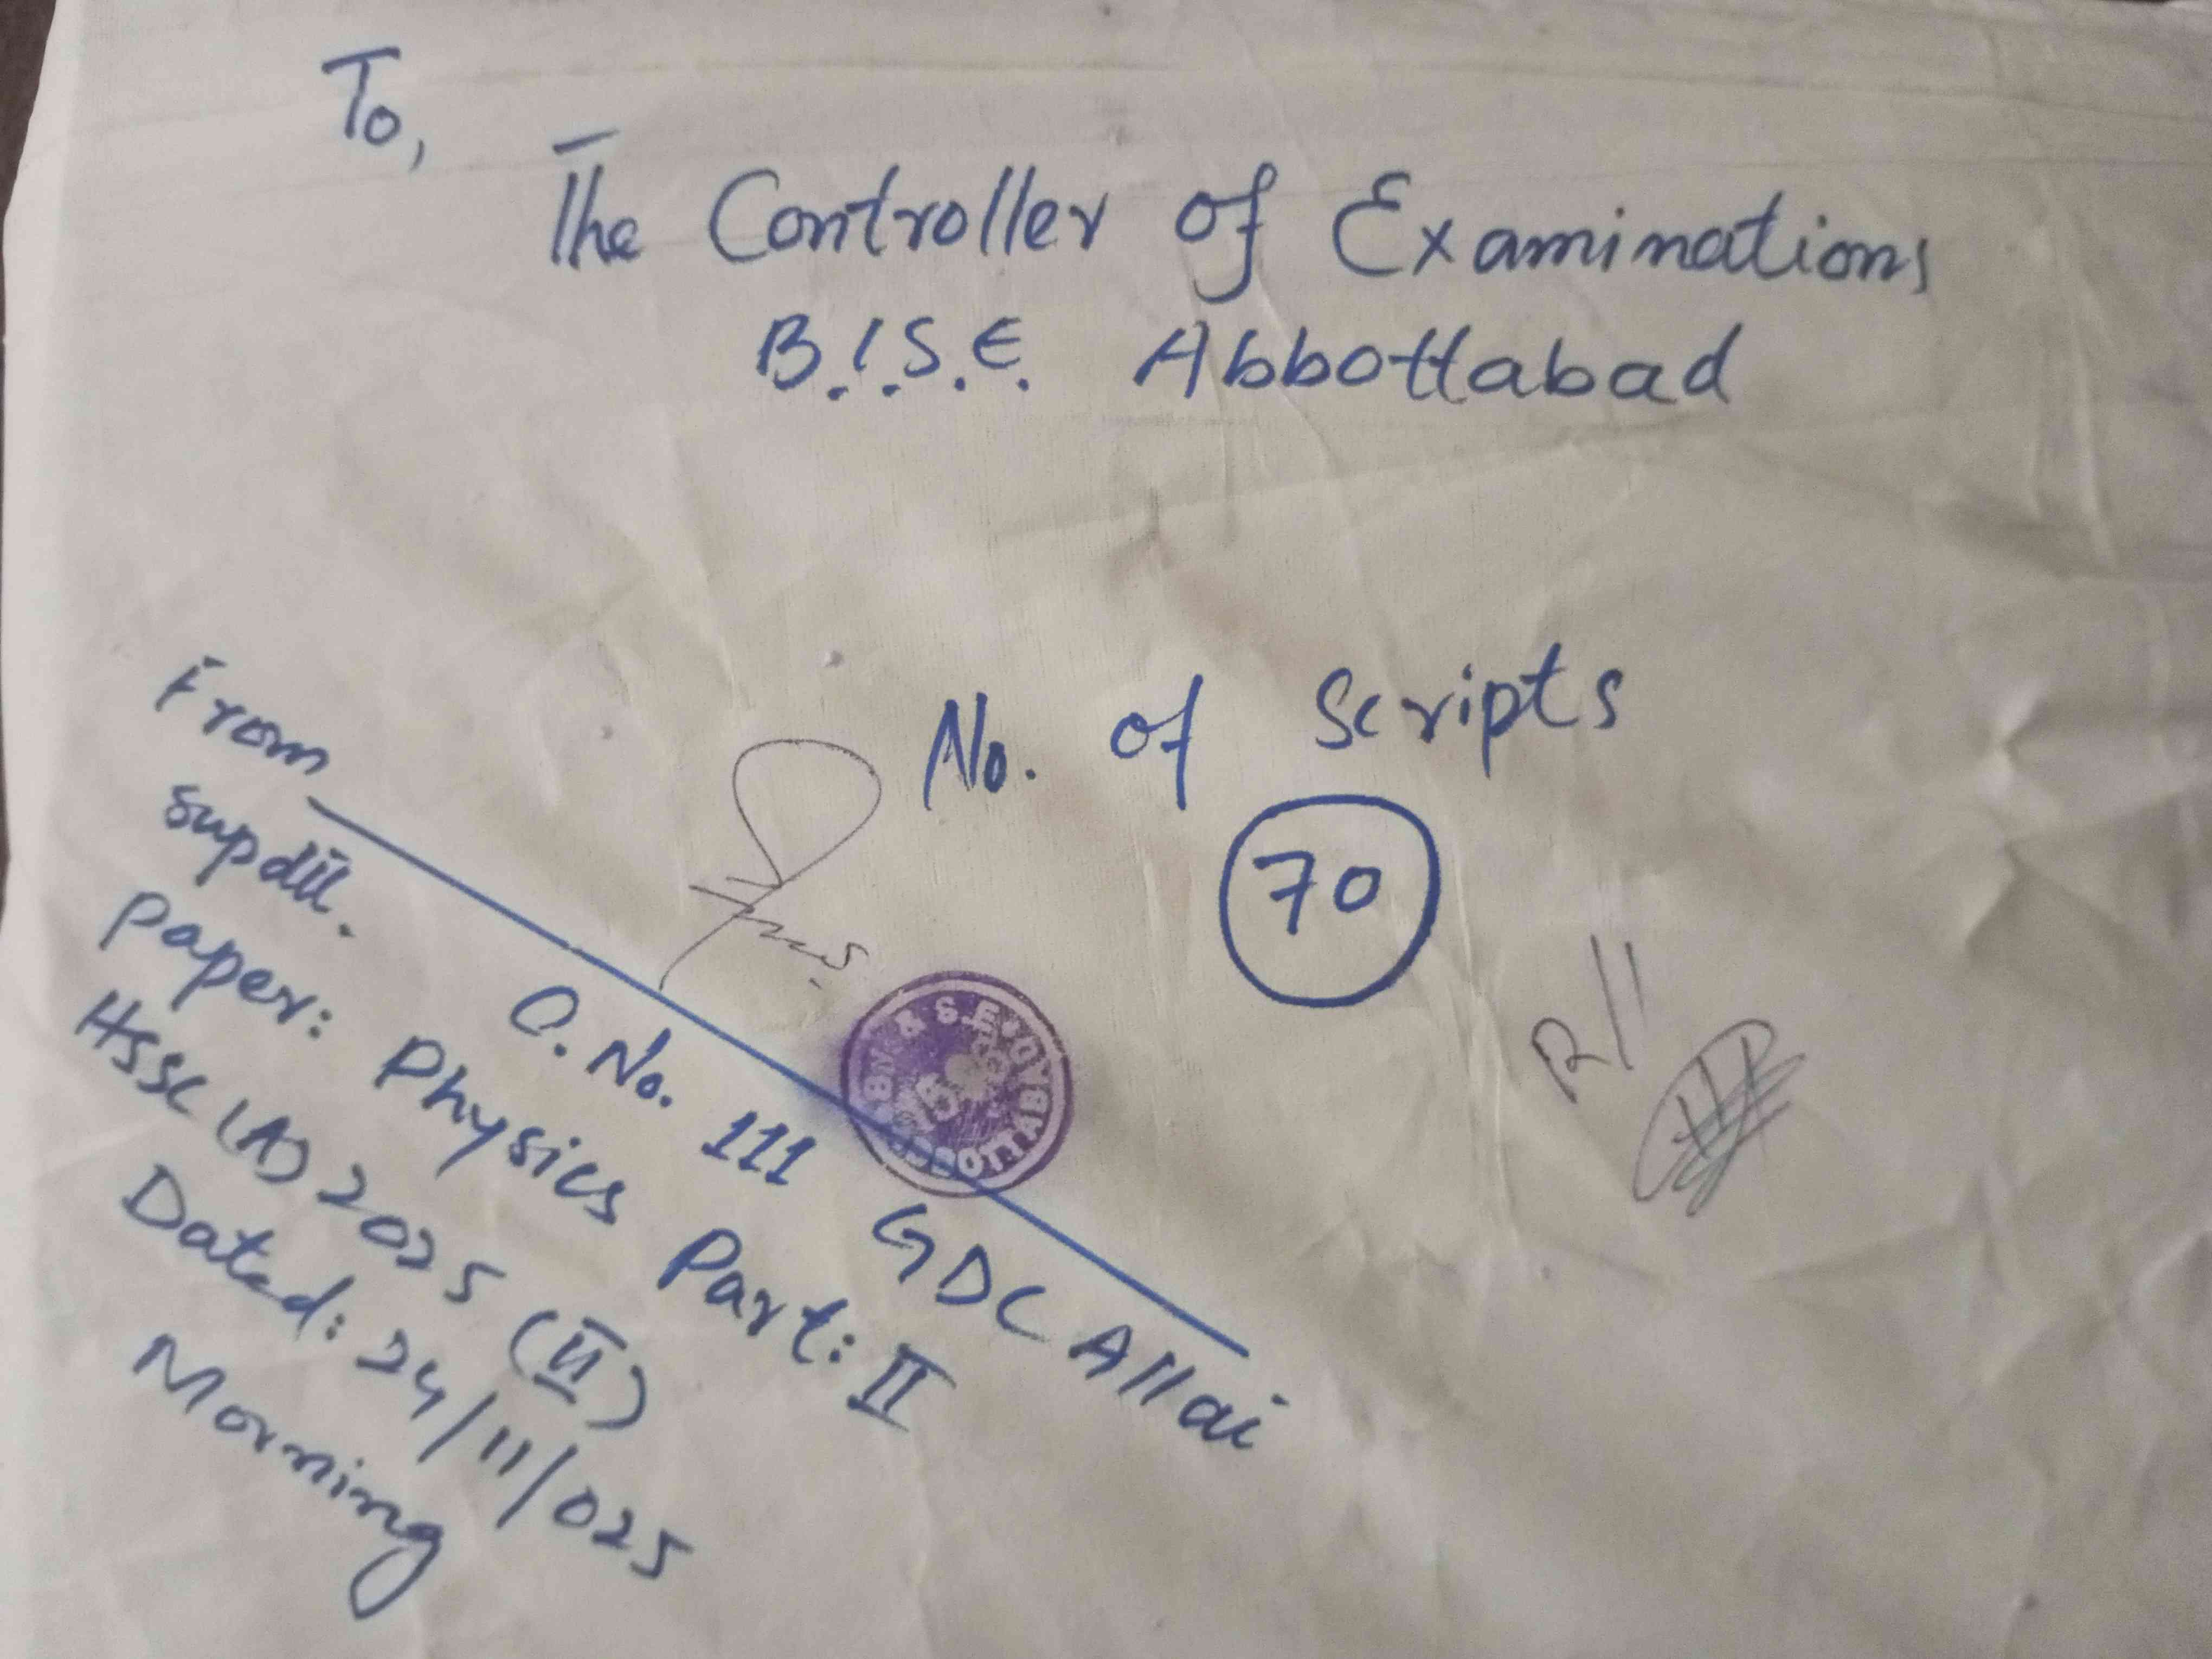 To,
The Controller of Examinations
B.I.S.E. Abbottabad
No. of Scripts
70
From
Supdtt.
C. No. 111 GDC Allai
Paper: Physics Part: II
HSSC (A) 2025 (II)
Dated: 24/11/025
Morning
R//